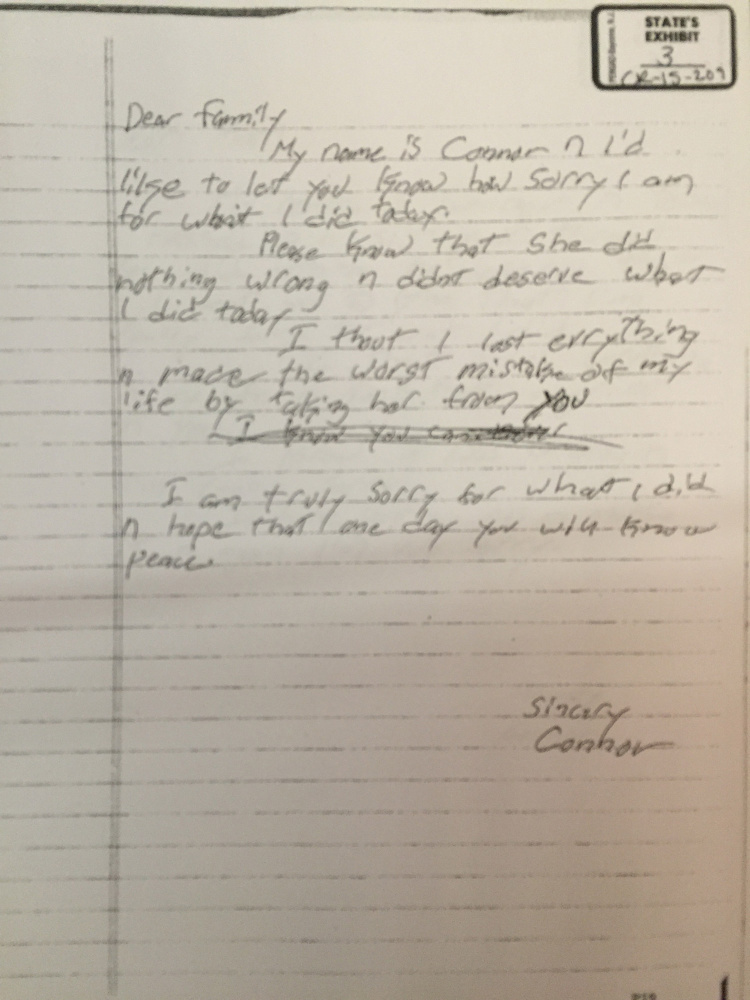 STATE'S
EXHIBIT
3
CR-15-209
Dear Family
My name is Connor n I'd
like to let you know how sorry I am
for what I did today.
Please know that she did
nothing wrong n didnt deserve what
I did today
I thout I lost erything
n made the worst mistake of my
life by taking her from you
I know you
I am truly sorry for what I did
n hope that one day you will know
peace
Sincery
Connor